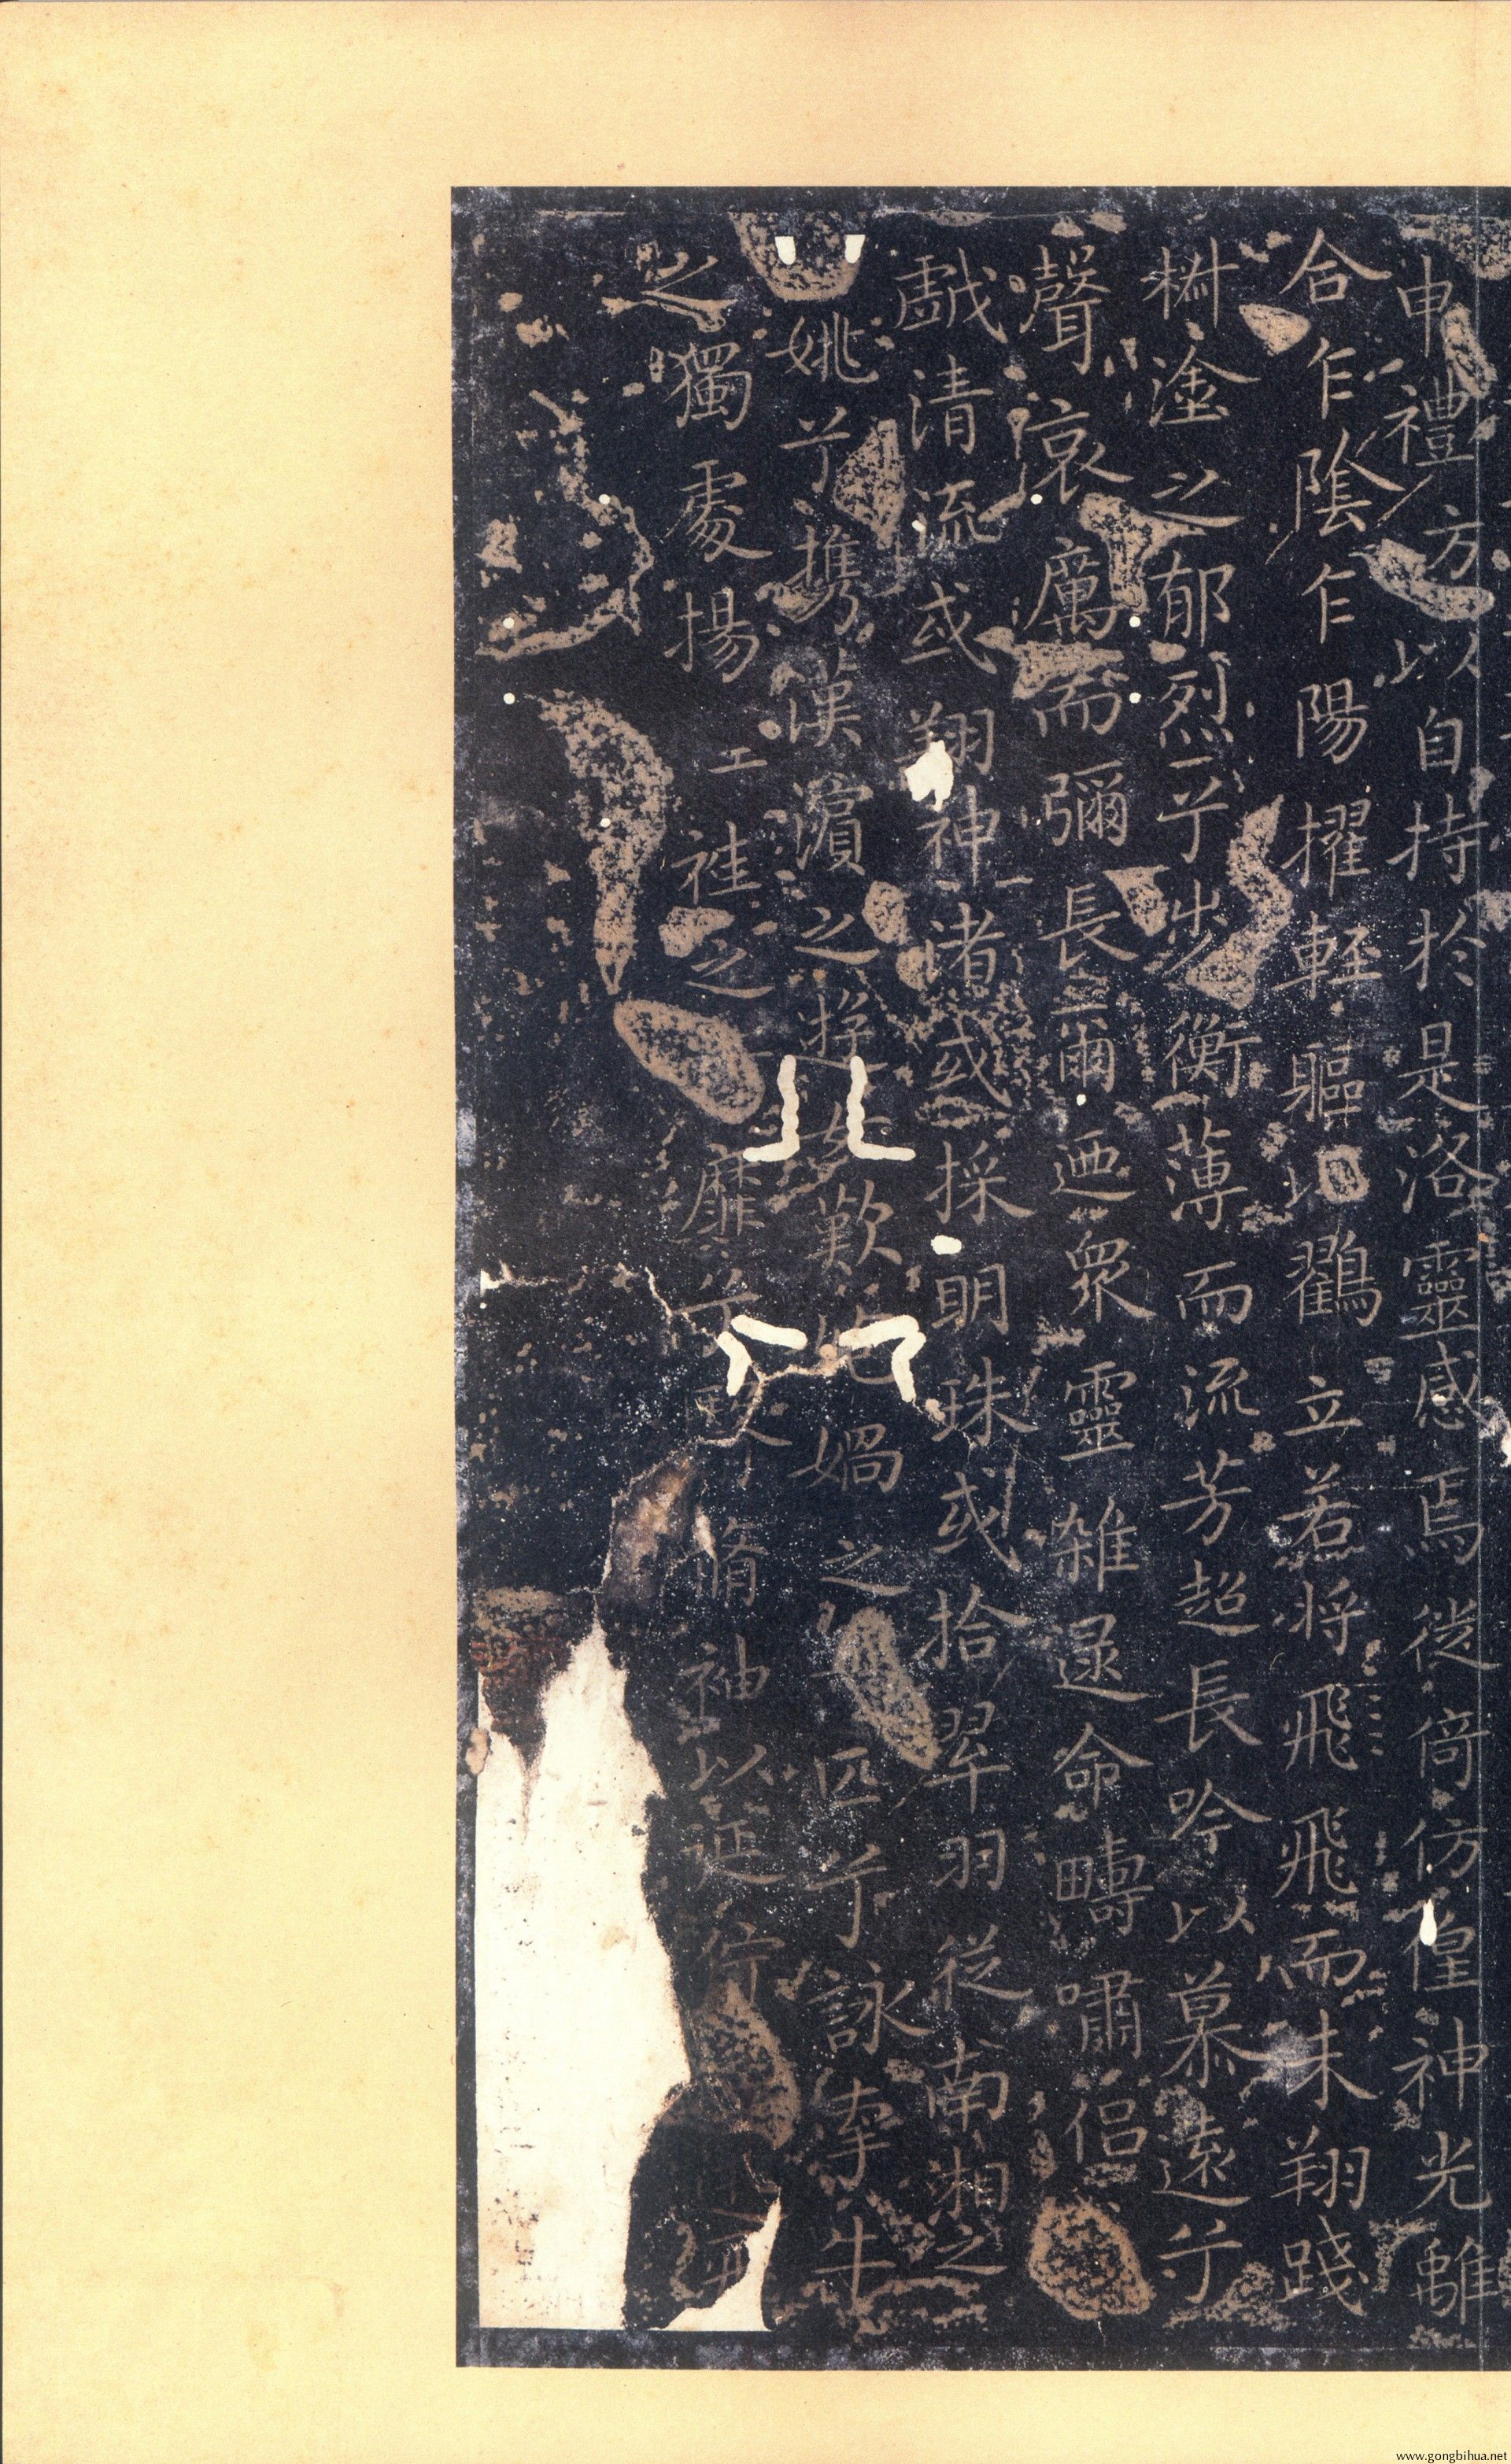 申禮方以自持於是洛靈感焉徙倚仿偟神光離
合乍陰乍陽擢輕軀以鶴立若将飛飛而未翔踐
椒塗之郁烈兮步衡薄而流芳超長吟以慕遠兮
聲哀厲而彌長爾迺衆靈雜遝命疇嘯侶
戲清流或翔神渚或採明珠或拾翠羽從南湘之
姚兮携漢濱之女歎媧之匹兮詠牽牛
之獨處揚袿之靡兮脩袖以延佇
www.gongbihua.net